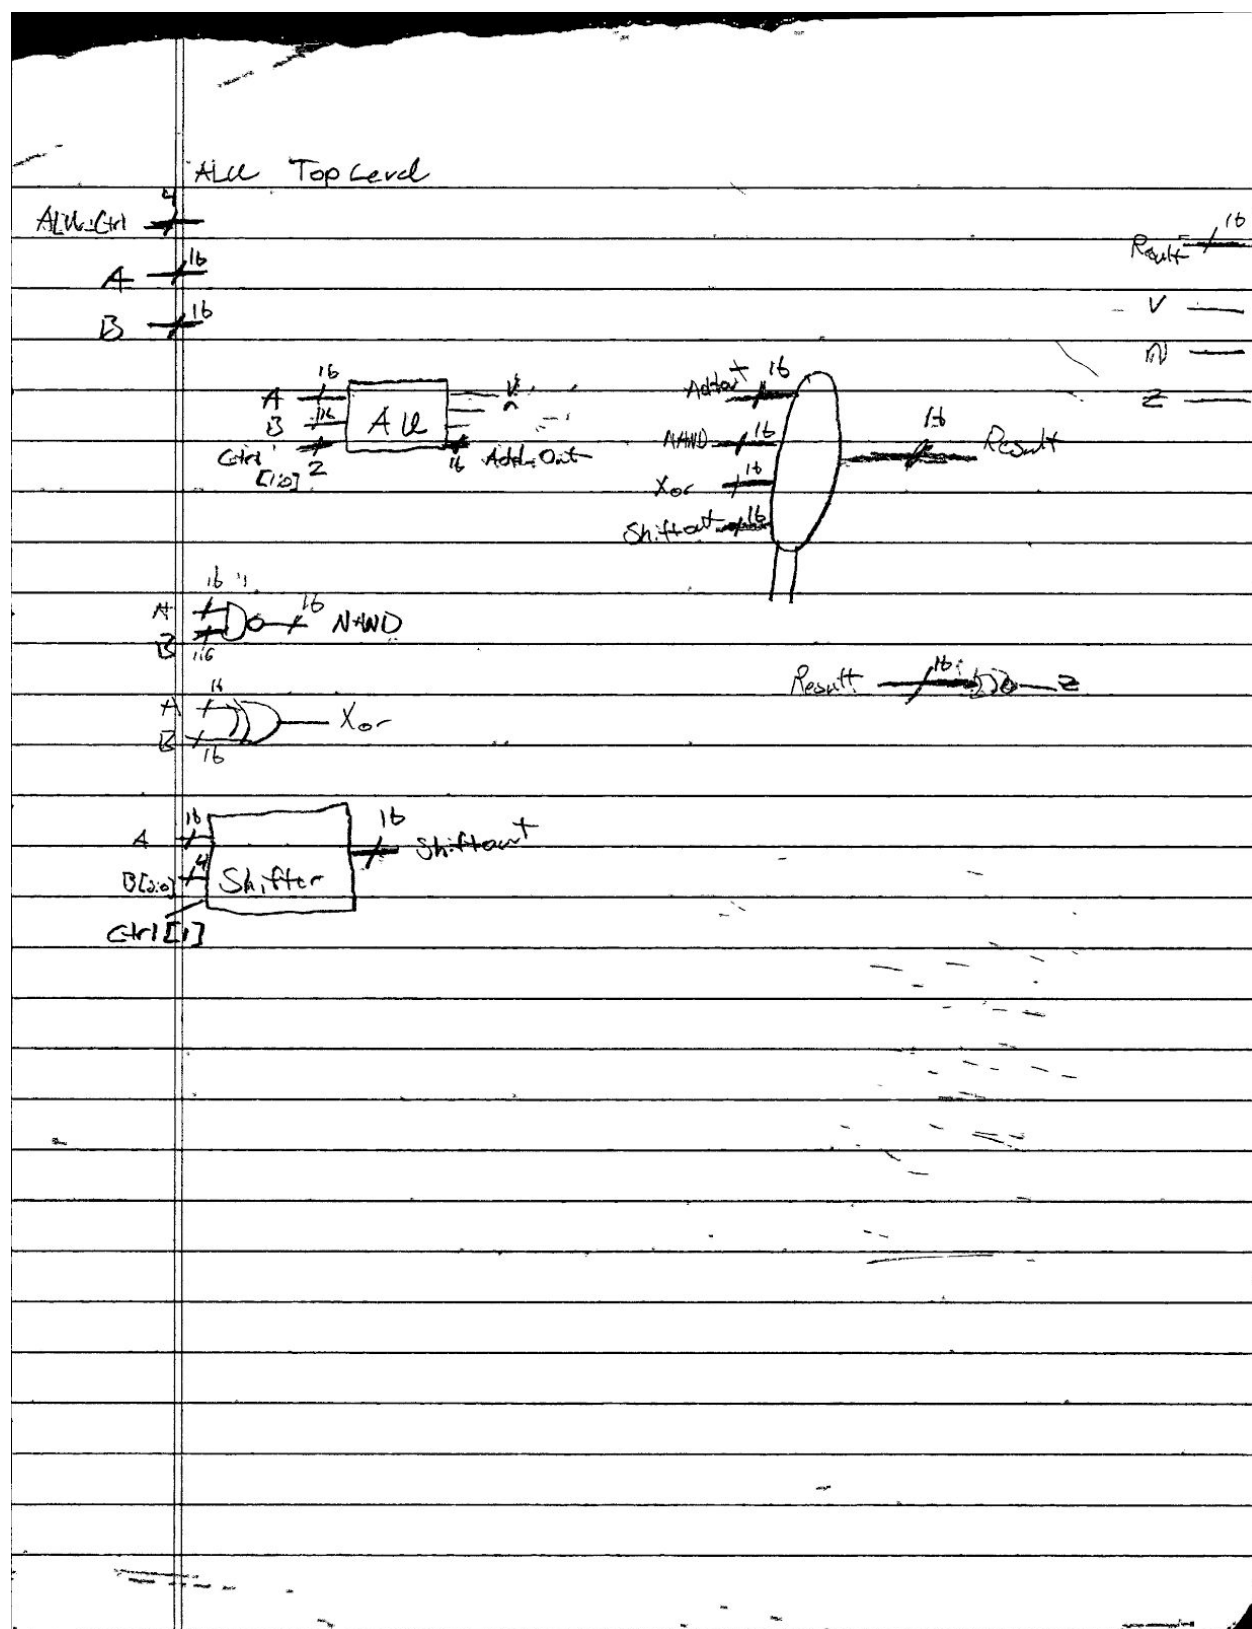 ALU Top Level
4
ALU-Ctrl
16
A
16
B
16
Result
V
N
Z
16
A
16
B
Ctrl
[1:0]
2
AU
V
n
16 Add-Out
Addout 16
NAND 16
Xor 16
Shiftout 16
16
Result
16
A
B
16
16
NAND
16
A
B
16
Xor
Result 16 Z
16
A
4
B[3:0]
Ctrl[1]
Shifter
16
Shiftout